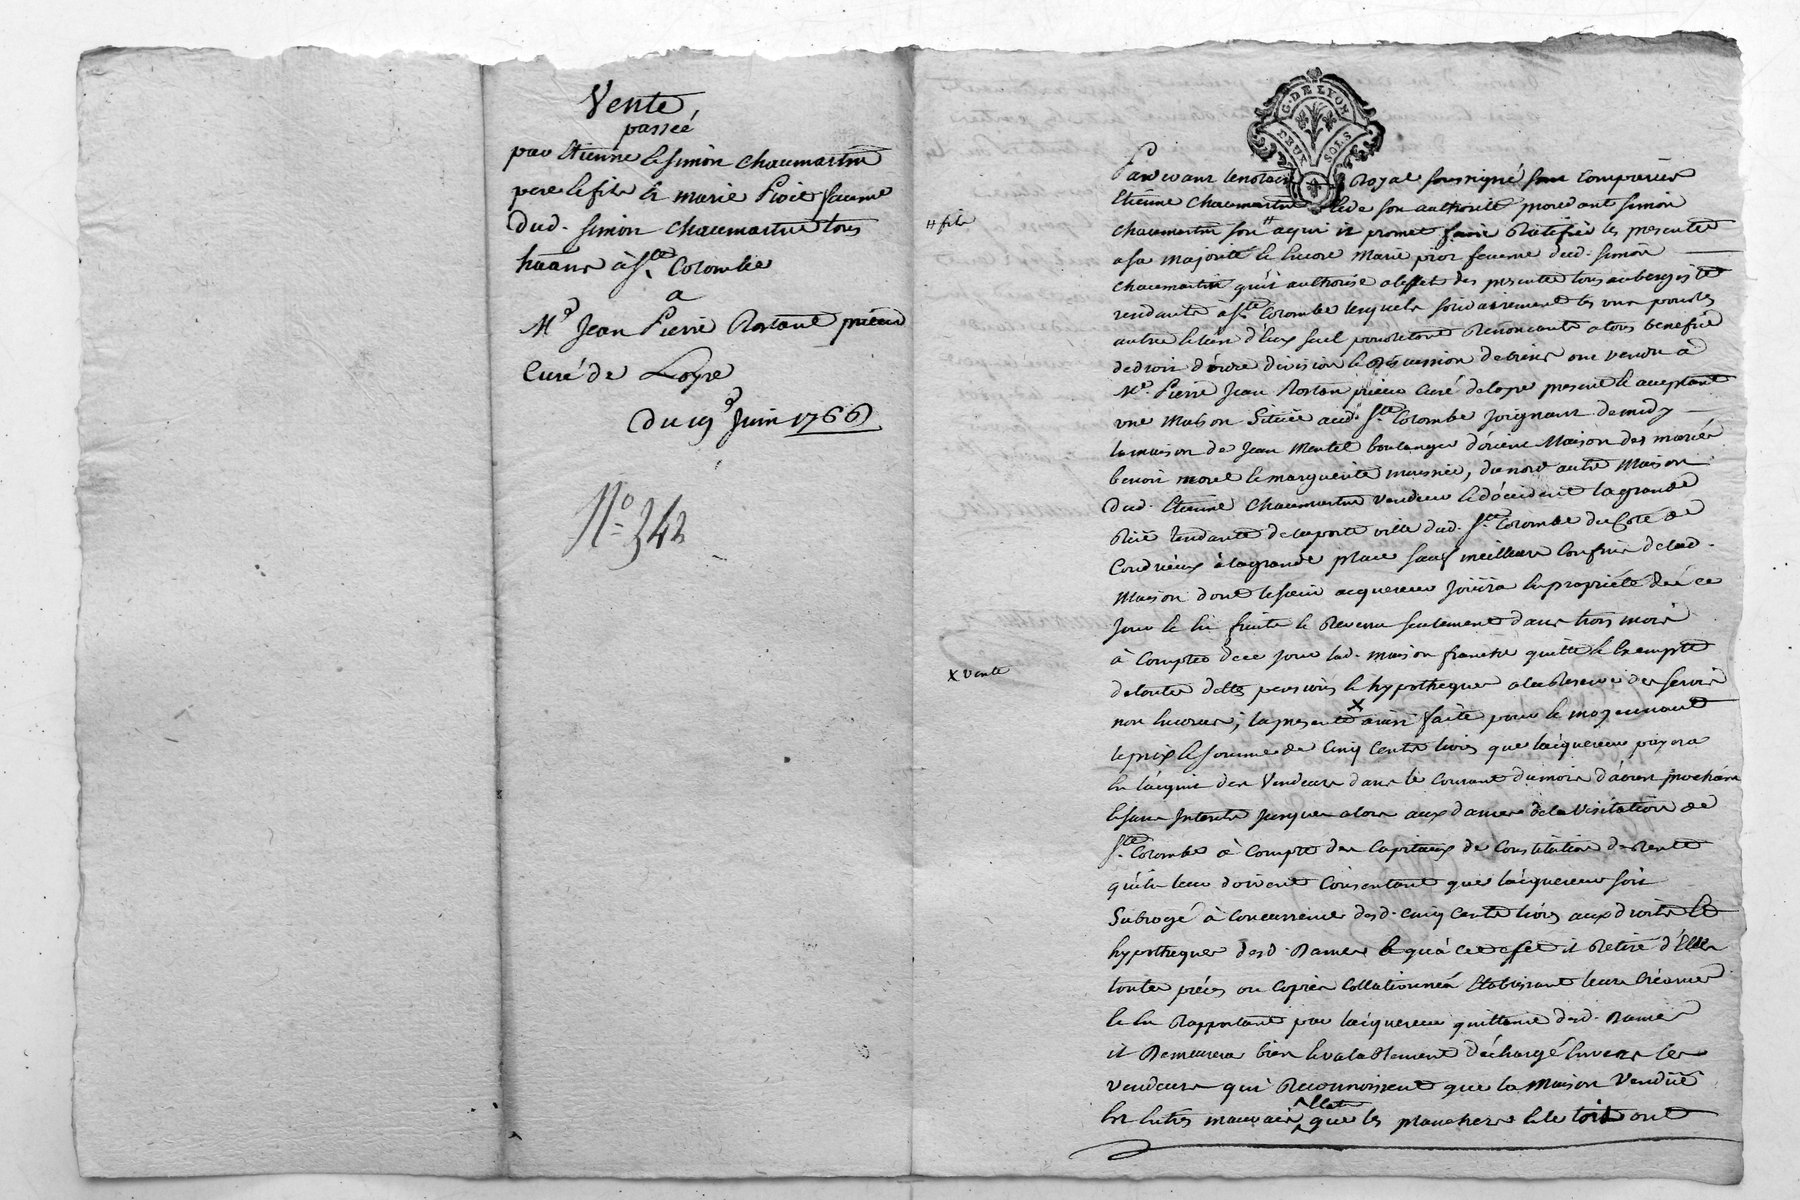 Vente
passeé
par Etienne & simon chaumartin
pere & fils & marie Prioir femme
dud. simon chaumartin tous
hãans à Ste. Colombe
a
Mr Jean Pierre Rostant prieur
Curé de Loyre
du 19e Juin 1766
No. 342
G. DE LYON
DEUX SOLS
Pardevant le notaire Royal soussigné sont comparûs
Etienne Chaumartin & de son authorité procedant simon
# fils
chaumartin son # aqui il promet faire Ratifier les presentes
a sa majorité & encore Marie prior femme dud. simon
chaumartin qu'il authorise a leffet des presentes tous aubergistes
rendants a Ste Colombe lesquels solidairement les uns pour les
autres & lun d'eux seul pour le tout Renoncants a tous benefice
de droit d'ordre division & discussion de biens ont vendu à
Mr. Pierre Jean Rostan prieur Curé de loyre present & acceptant
une Maison Située aud. Ste Colombe Joignant de midy
la maison de Jean Mentel boulanger d'orient Maison des mariés
benoit morel & marguerite mausnier, du nord autre Maison
dud. Etienne Chaumartin Vendeur & d'occident la grande
Rüe tendante de la porte ville dud. Ste. Colombe du Coté de
Condrieux à la grande place sauf meilleurs Confins de lad.
Maison dont le sieur acquereur Joüira en propriété dès ce
Jour & en fruits & Revenu seulement dans trois mois
à Compter de ce jour lad. maison franche quitte & Exempte
X vente
de toutes dettes pensions & hypotheques a la Reserve des servis
non Encourus; la presente X ainsi faite pour & moyennant
le prix & somme de Cinq Cents livres que lacquereur payera
En l'acquit des Vendeurs dans le Courant du mois d'avril prochain
& sans Interets jusques alors aux dames de la Visitation de
Ste. Colombe à Compte des Capitaux de Constitution de Rente
qu'ils leur doivent Consentant que lacquereur soit
Subrogé à Concurrence desd. Cinq Cents livres aux droits &
hypotheques desd. Dames & qu'à cet effet il Retire d'Elles
toutes pièces ou Copies Collationnées Etablissant leurs Créances
& En Rapportant par lacquereur quittance desd. Dames
il Demeurera bien & valablement déchargé Envers les
Vendeurs qui Reconnoissent que la Maison Vendüe
Est En très mauvais Etat que les planchers & le toit ont